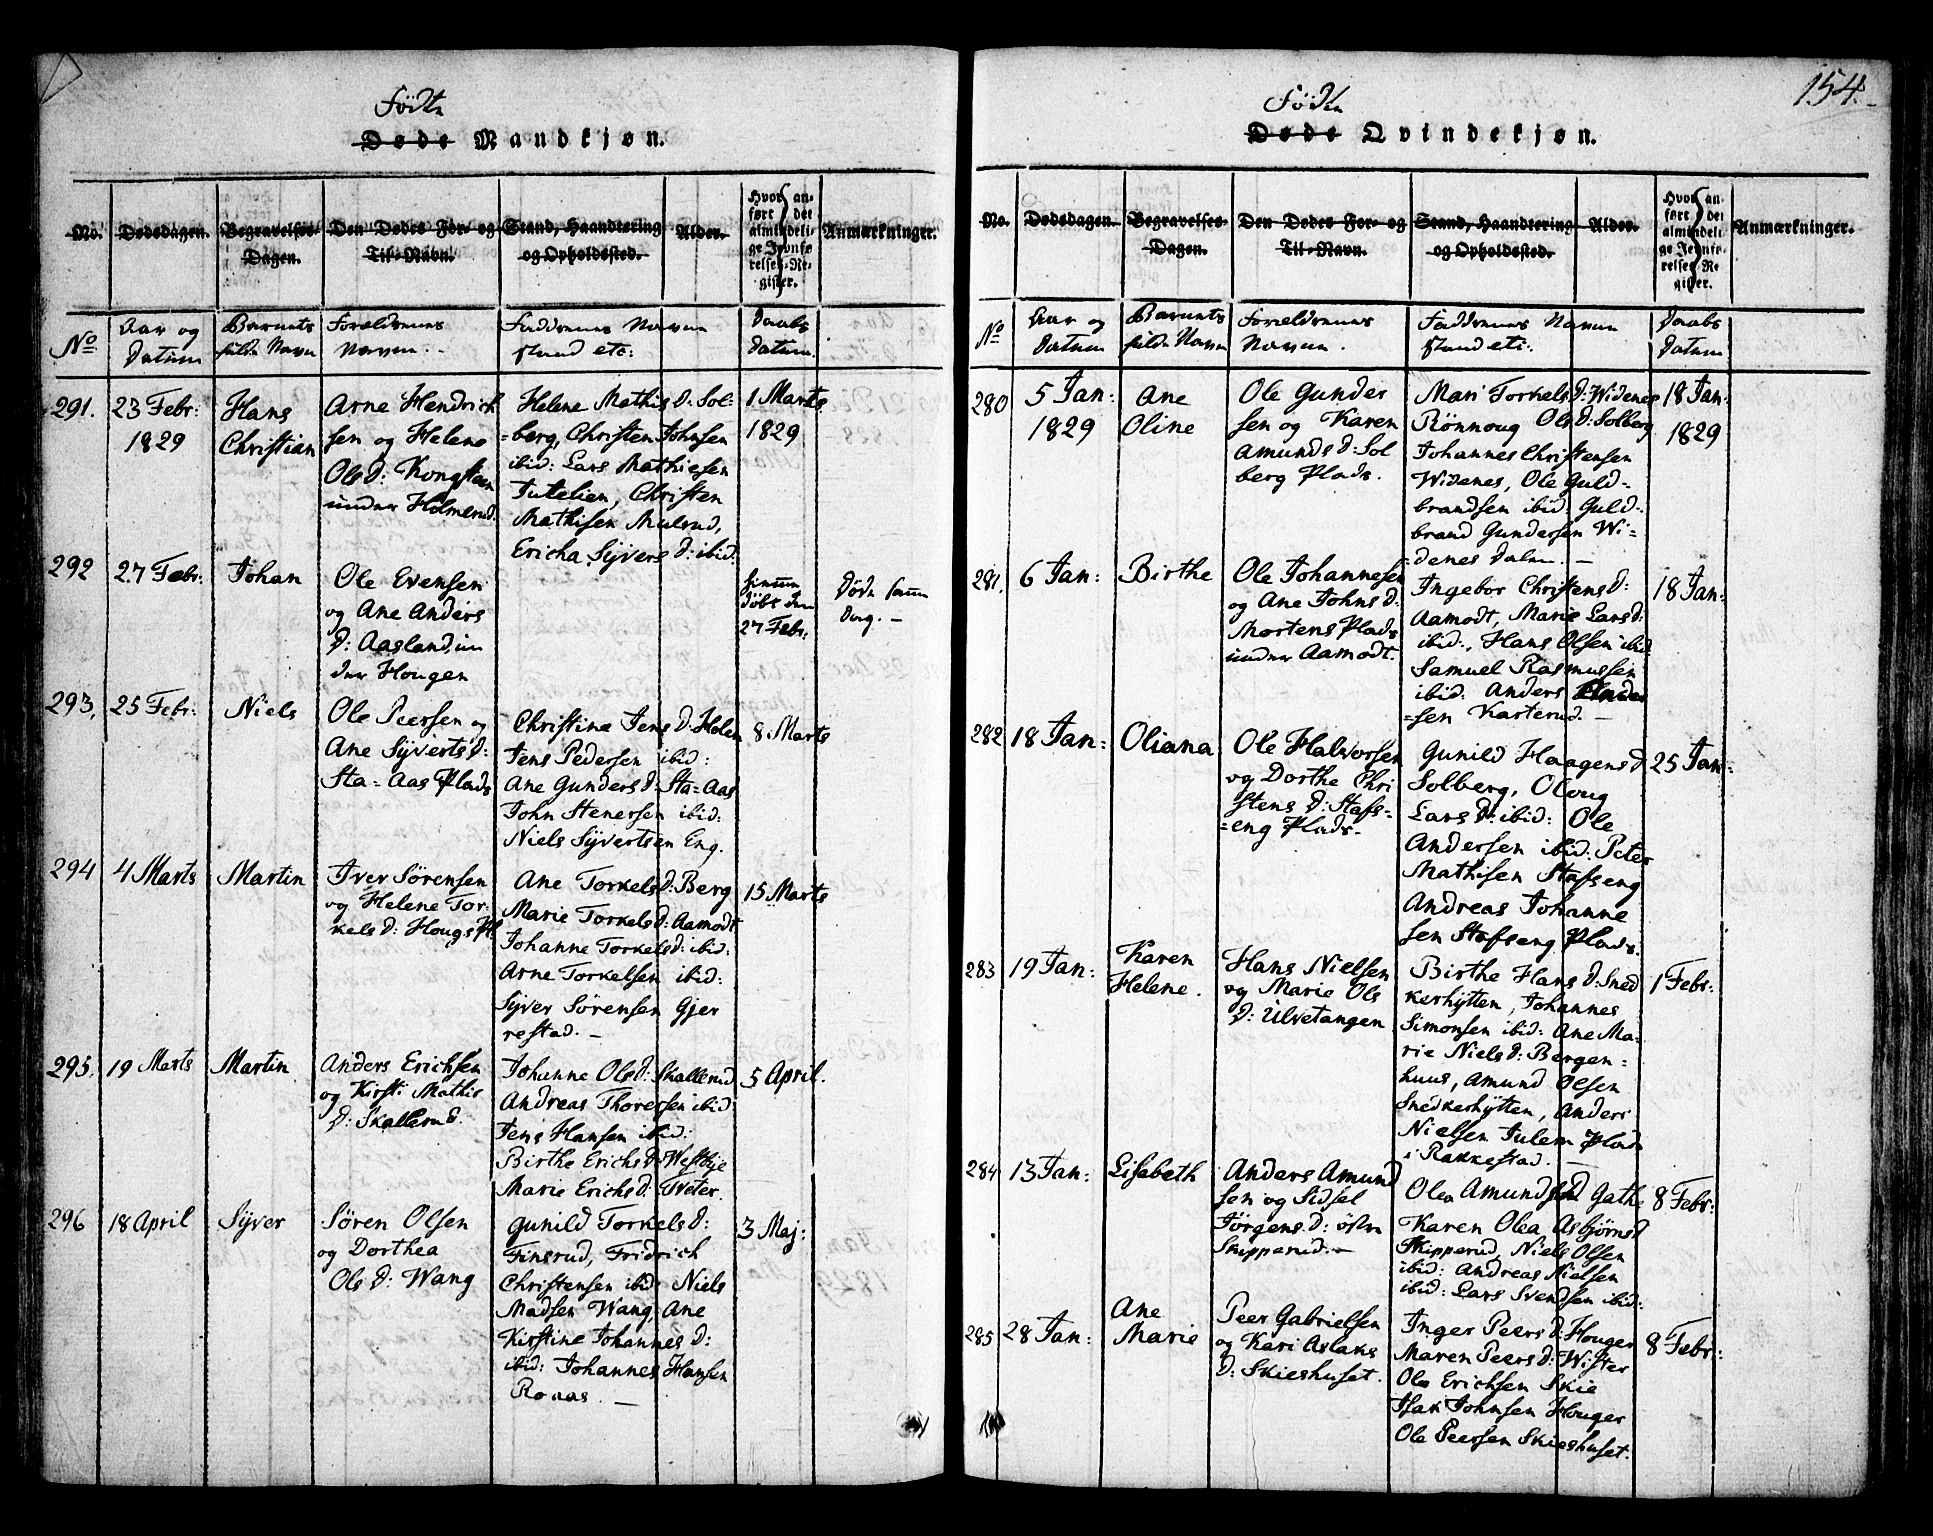 154.
Födte
Døde Mandkjøn.
No. Dødsdagen. Begravelses- Dagen. Den Dødes For- og Til-Navn. Stand, Haandtering og Opholdssted. Alder. Hvor anført i det almindelige Jevnførelses-Register. Anmærkninger.
No Aar og Datum Barnets fulde Navn Forældrenes Navne. Faddernes Navne stand etc: Daabs Datum.
291. 23 Febr: 1829
Hans
Christian
Arne Hendrich
sen og Helene
Olsd: Kongsteen
under Holmerud.
Helene Mathis d: Sol-
berg, Christen Johnsen
ibid: Lars Mathiesen
Tutelien, Christen
Mathisen Mulrud,
Ericha Syvers d: ibid:
1 Marts
1829
292 27 Febr: Johan
Ole Evensen
og Ane Anders
d: Aasland, un
der Hougen
hiemme
døbt den
27 Febr:
Døde samme
Dag. —
293. 25 Febr: Niels
Ole Peersen og
Ane Syverts d:
Sta=Aas Plads
Christine Jens d: Holen
Jens Pedersen ibid:
Ane Gunders d: Sta=Aas
John Stenersen ibid:
Niels Syvertsen Eng.
8 Marts
294 4 Marts Martin
Iver Sörensen
og Helene Tor
kels d: Hougs Pl.
Ane Torkels d: Berg
Marie Torkels d: Aamodt
Johanne Torkels d: ibid:
Arne Torkelsen ibid:
Syver Sörensen Gjer
restad. —
15 Marts
295. 19 Marts Martin
Anders Erichsen
og Kirsti Mathis
d: Skallerud.
Johanne Ols d: Skallerud
Andreas Thoresen ibid
Jens Hansen ibid:
Birthe Erichs d: Westbye
Marie Erichs d: Tveter.
5 April.
296 18 April Syver
Sören Olsen
og Dorthea
Ols d: Wang
Gunild Torkels d:
Finsrud, Fridrich
Christensen ibid: Niels
Madsen Wang, Ane
Kirstine Johannes d:
ibid: Johannes Hansen
Roaas. —
3 Maj:
Födte
Døde Qvindekjøn.
No. Dødsdagen. Begravelses- Dagen. Den Dødes For- og Til-Navn. Stand, Haandtering og Opholdssted. Alder. Hvor anført i det almindelige Jevnførelses-Register. Anmærkninger.
No Aar og Datum Barnets fulde Navn Forældrenes Navne. Faddernes Navne stand etc: Daabs Datum
280 5 Jan: 1829
Ane
Oline
Ole Gunder
sen og Karen
Amunds d: Sol
berg Plads.
Mari Torkels d: Widenes
Rönnoug Ols d: Solberg
Johannes Christensen
Widenes, Ole Guld-
brandsen ibid: Guld-
brand Gundersen Wi=
=denes Dalen. —
18 Jan:
1829
281. 6 Jan: Birthe
Ole Johannesen
og Ane Johns d:
Mortens Plads
under Aamodt.
Ingebor Christens d:
Aamodt, Marie Lars d:
ibid:, Hans Olsen ibid
Samuel Rasmussen
ibid: Anders Ander
=sen Karterud. —
18 Jan:
282 18 Jan: Oliana
Ole Halvorsen
og Dorthe Chri
stens d: Stafs=
=eng Plads.
Gunild Haagens d
Solberg, Oloug
Lars d: ibid: Ole
Andersen ibid: Peter
Mathisen Stafseng
Andreas Johanne
sen Stafseng Plads.
25 Jan:
283 19 Jan:
Karen
Helene.
Hans Nielsen
og Marie Ols
d: Ulvetangen
Birthe Hans d: Sned
kerhytten, Johannes
Simonsen ibid: Ane Ma-
rie Niels d: Bergen=
huus, Amund Olsen
Snedkerhytten, Anders
Nielsen Julem Plads
i Rakkestad. —
1 Febr:
284 13 Jan: Lisabeth
Anders Amund
sen og Sidsel
Jørgens d: östre
Skipperud. —
Olea Amunds d Gathe
Karen Olea Asbjørns d
Skipperud, Niels Olsen
ibid: Andreas Nielsen
ibid: Lars Svendsen ibid:
8 Febr:
285 28 Jan:
Ane
Marie
Peer Gabrielsen
og Kari Aslaks
d: Skieshuset.
Inger Peers d: Houger
Maren Peers d: Wister
Ole Erichsen Skie
Isak Johnsen Houger
Ole Peersen Skieshuset.
8 Febr: